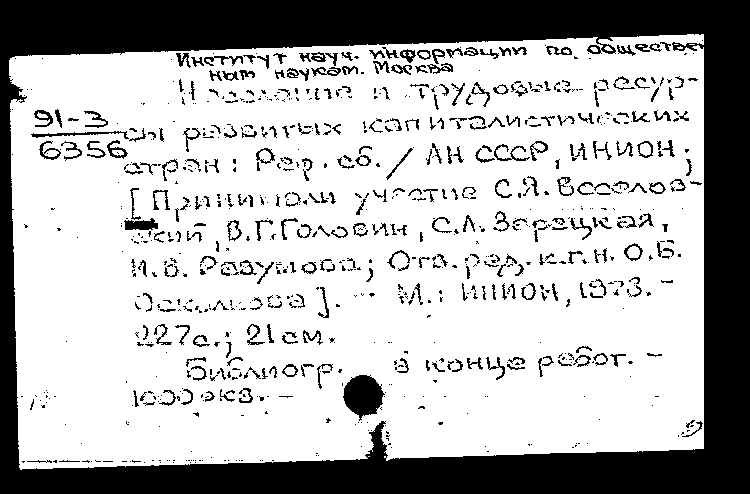 Институт науч. информации по обществен
ным наукам. Москва
Население и трудовые ресур-
91-3
6356
сы развитых капиталистических
стран: Реф. сб. / АН СССР, ИНИОН;
[Принимали участие С.Я. Веселов-
ский, В.Г. Головин, С.Л. Зарецкая,
И.В. Разумова; Отв. ред. к.г.н. О.Б.
Осколкова]. - М.: ИНИОН, 1973. -
227с.; 21см.
Библиогр. в конце работ. -
1000экз. -